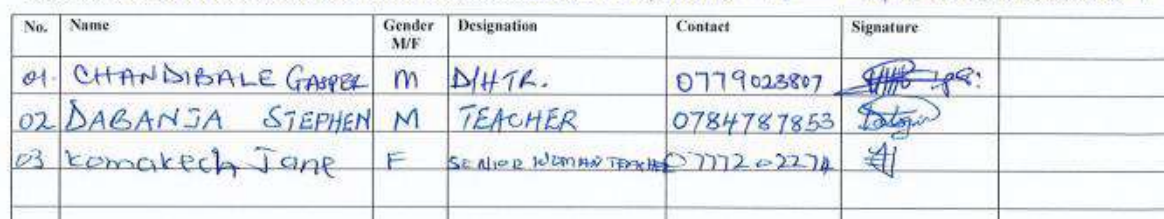 No. Name Gender M/F Designation Contact Signature
01. CHANDIBALE GASPER M D/HTR. 0779023807
02 DABANJA STEPHEN M TEACHER 0784787853
03 Komakech Jane F SENIOR WOMAN TEACHER 0777202274